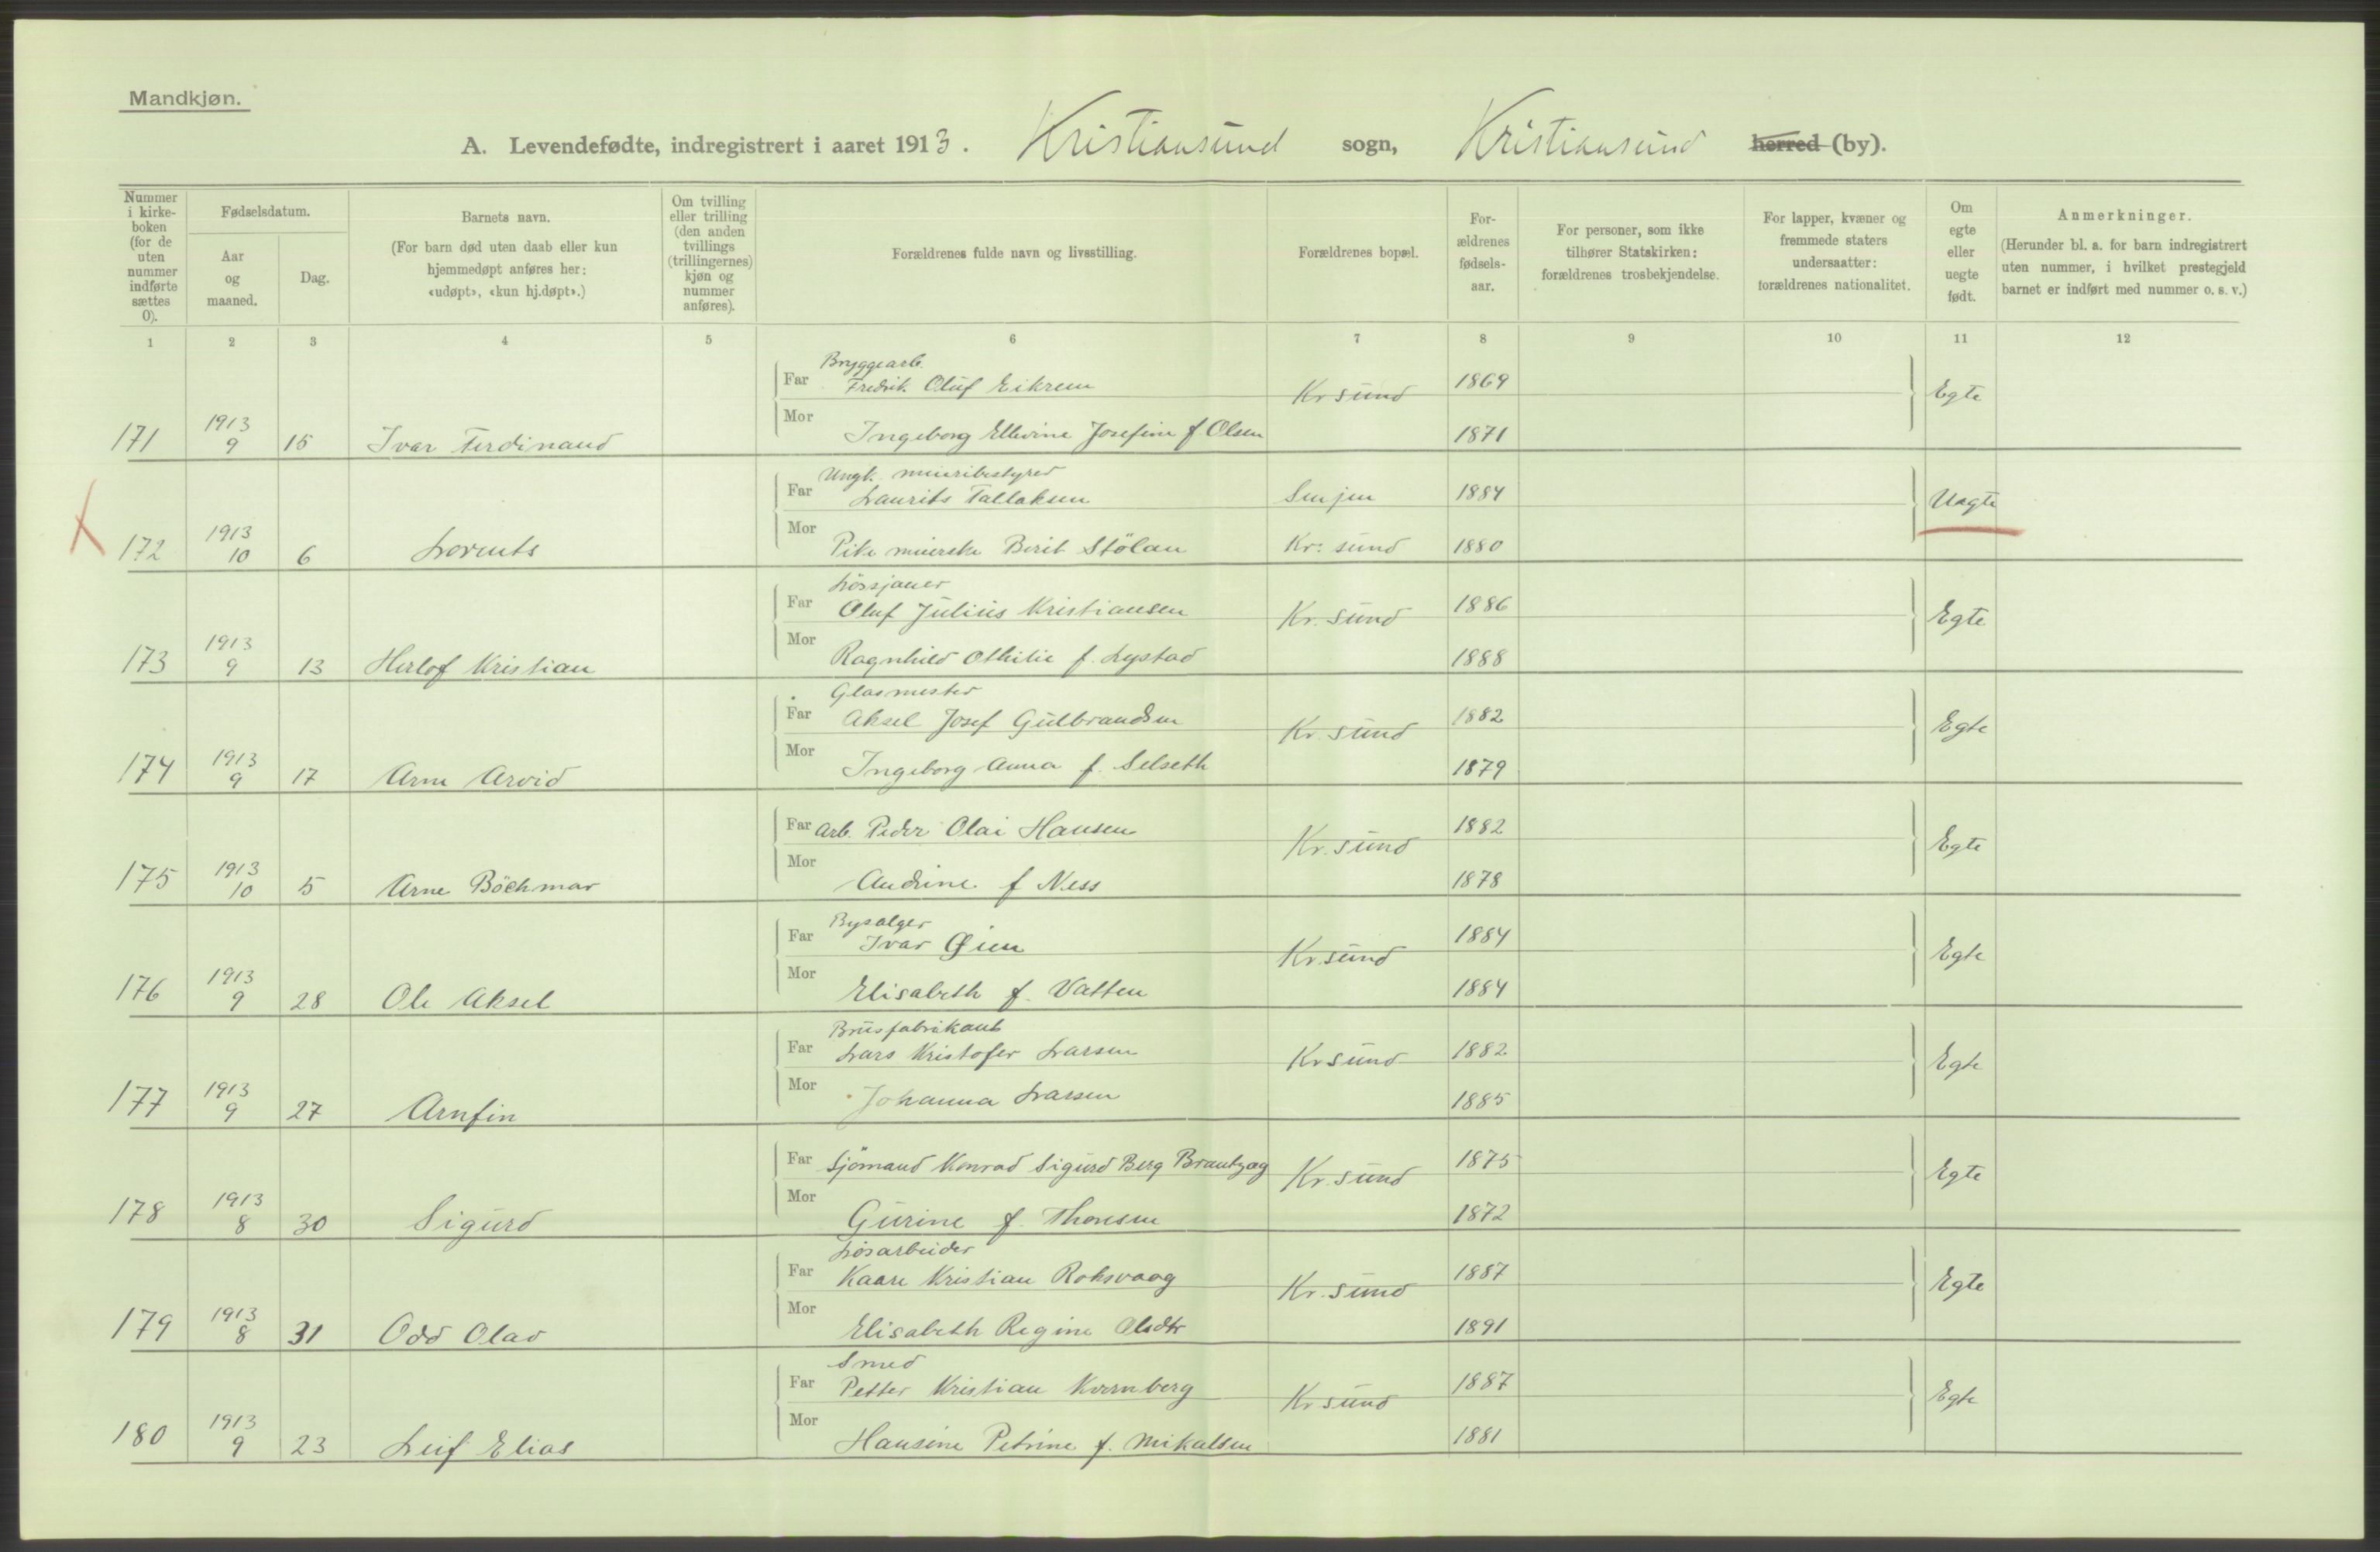 Mandkjøn.
A. Levendefødte, indregistrert i aaret 1913. Kristiansund sogn, Kristiansund herred (by).
Nummer i kirke-boken (for de uten nummer indførte sættes 0).
Fødselsdatum.
Aar og maaned.
Dag.
Barnets navn.
(For barn død uten daab eller kun hjemmedøpt anføres her: «udøpt», «kun hj.døpt».)
Om tvilling eller trilling (den anden tvillings (trillingernes) kjøn og nummer anføres).
Forældrenes fulde navn og livsstilling.
Forældrenes bopæl.
For-ældrenes fødsels-aar.
For personer, som ikke tilhører Statskirken: forældrenes trosbekjendelse.
For lapper, kvæner og fremmede staters undersaatter: forældrenes nationalitet.
Om egte eller uegte født.
Anmerkninger.
(Herunder bl. a. for barn indregistrert uten nummer, i hvilket prestegjeld barnet er indført med nummer o. s. v.)
1 2 3 4 5 6 7 8 9 10 11 12
Bryggearb.
Far Fredrik Oluf Eikrem Kr sund 1869 Egte
171 1913 9 15 Ivar Ferdinand Mor Ingeborg Ellevine Josefine f. Olsen 1871
Ungk. meieribestyrer
Far Laurits Tallaksen Senjen 1884 Uegte
X 172 1913 10 6 Lorents Mor Pike meierske Berit Stölan Kr: sund 1880
Lössjauer
Far Oluf Julius Kristiansen Kr. sund 1886 Egte
173 1913 9 13 Herlof Kristian Mor Ragnhild Othilie f. Lystad 1888
Glasmester
Far Aksel Josef Gulbrandsen Kr. sund 1882 Egte
174 1913 9 17 Arne Arvid Mor Ingeborg Anna f. Selseth 1879
Far Arb. Peder Olai Hansen Kr. sund 1882 Egte
175 1913 10 5 Arne Böchmar Mor Andrine f Ness 1878
Bysælger
Far Ivar Øien Kr. sund 1884 Egte
176 1913 9 28 Ole Aksel Mor Elisabeth f. Vatten 1884
Brusfabrikant
Far Lars Kristofer Larsen Kr sund 1882 Egte
177 1913 9 27 Arnfin Mor Johanna Larsen 1885
Far Sjömand Konrad Sigurd Berg Brantzæg Kr. sund 1875 Egte
178 1913 8 30 Sigurd Mor Gurine f. Thonesen 1872
Lösarbeider
Far Kaare Kristian Roksvaag Kr. sund 1887 Egte
179 1913 8 31 Odd Olav Mor Elisabeth Regine Olsdtr 1891
Smed
Far Petter Kristian Kvernberg Kr sund 1887 Egte
180 1913 9 23 Leif Elias Mor Hansine Petrine f. Mikalsen 1881